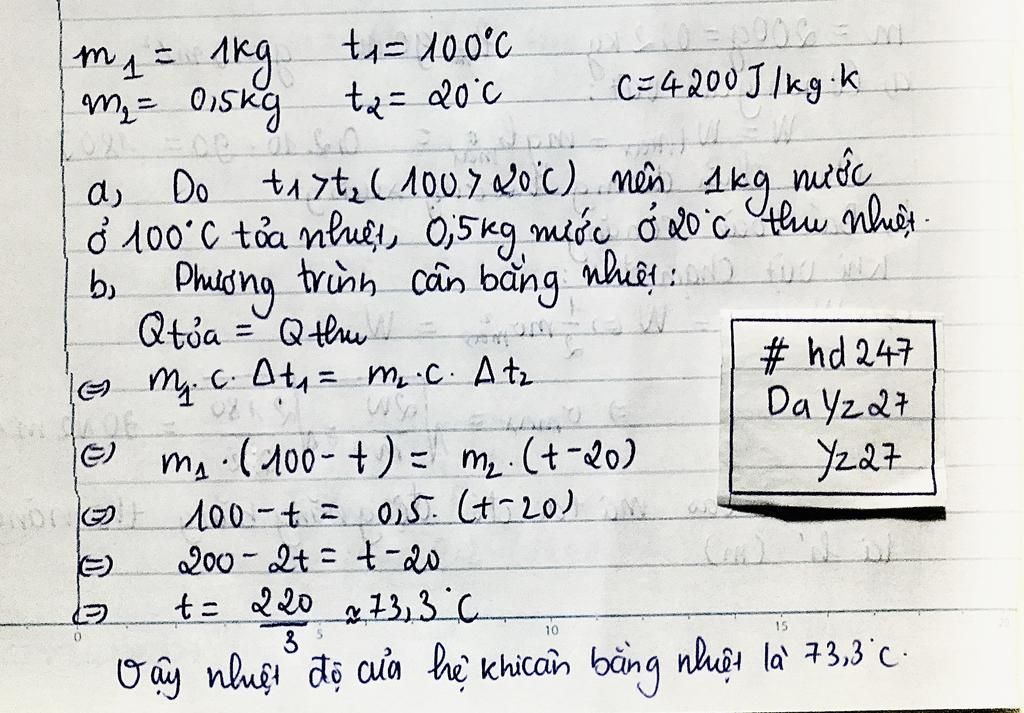 m1 = 1kg t1 = 100°C
m2 = 0,5kg t2 = 20°C C=4200J/kg.k
a, Do t1>t2(100>20°C) nên 1kg nước
ở 100°C tỏa nhiệt, 0,5kg nước ở 20°C thu nhiệt.
b, Phương trình cân bằng nhiệt:
Qtỏa = Qthu
⇔ m1.c.Δt1 = m2.c.Δt2
⇔ m1.(100-t) = m2.(t-20)
⇔ 100-t = 0,5.(t-20)
⇔ 200-2t = t-20
⇔ t = 220/3 ≈ 73,3°C
Vậy nhiệt độ của hệ khi cân bằng nhiệt là 73,3°C.
# hd247
DaYz27
Yz27
0 5 10 15